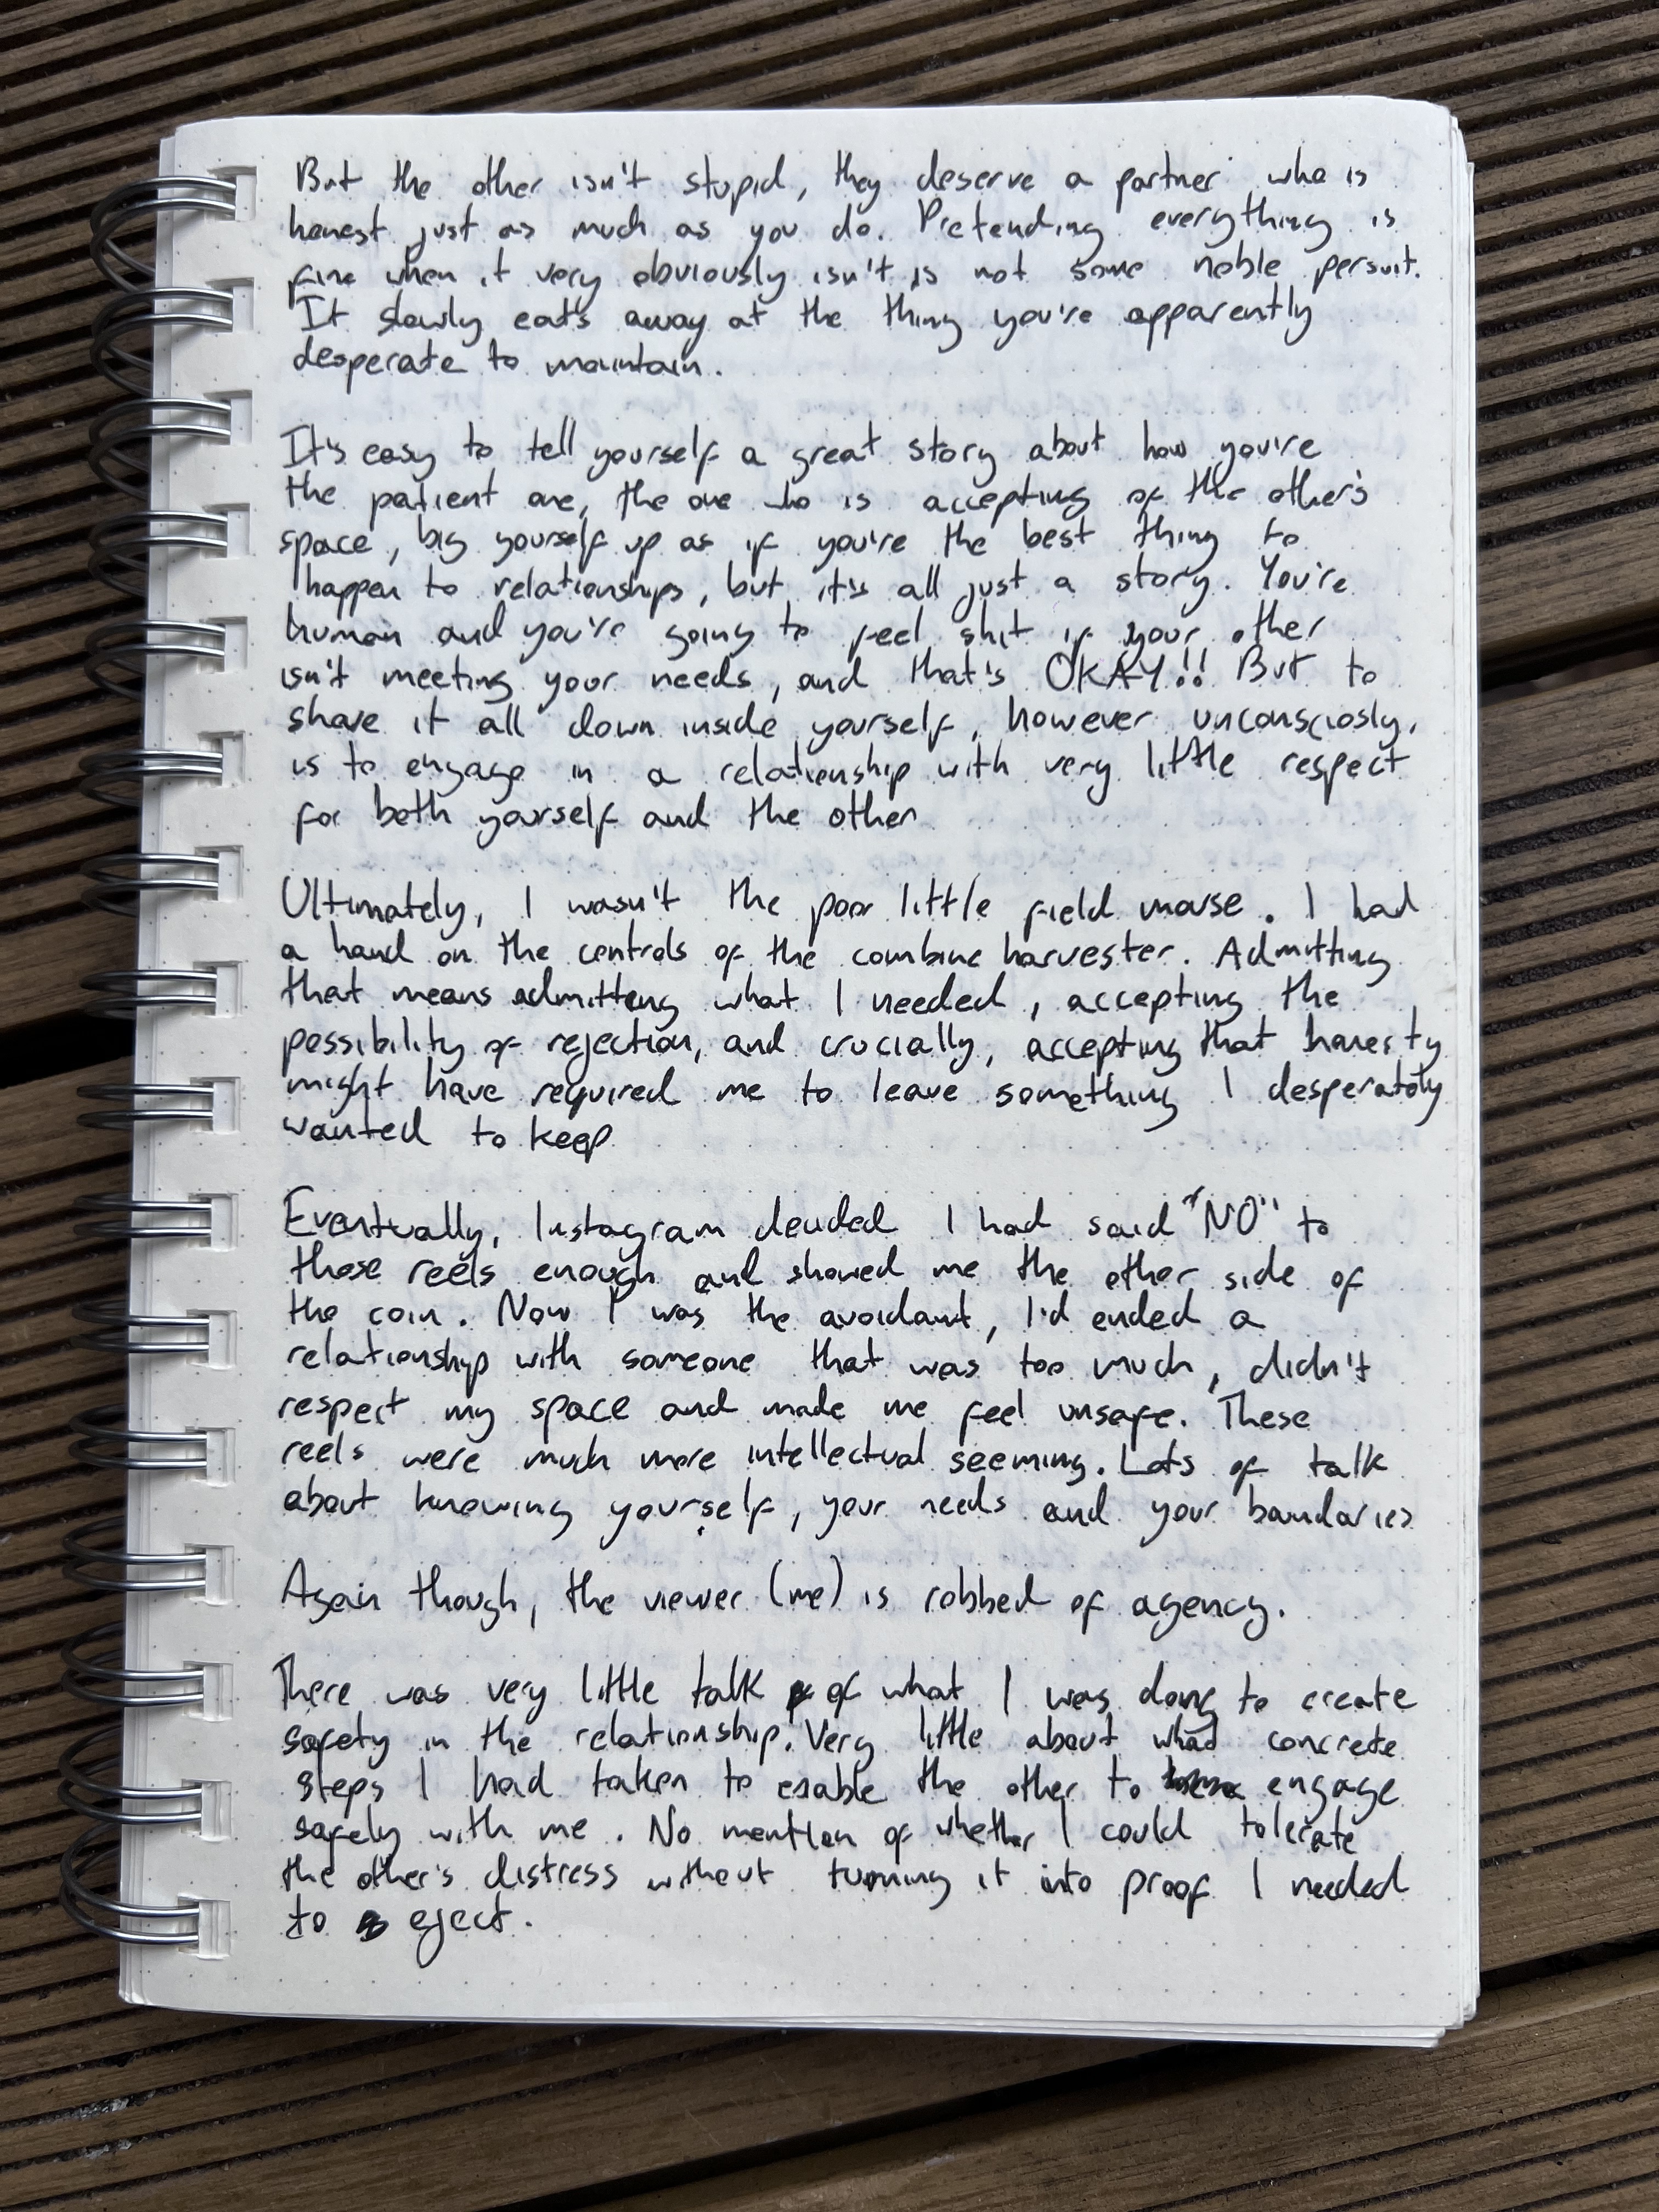 But the other isn't stupid, they deserve a partner who is
honest just as much as you do. Pretending everything is
fine when it very obviously isn't is not some noble persuit.
It slowly eats away at the thing you're apparently
desperate to maintain.
It's easy to tell yourself a great story about how you're
the patient one, the one who is accepting of the other's
space, big yourself up as if you're the best thing to
happen to relationships, but it's all just a story. You're
human and you're going to feel shit if your other
isn't meeting your needs, and that's OKAY!! But to
shove it all down inside yourself, however unconsciosly,
is to engage in a relationship with very little respect
for both yourself and the other
Ultimately, I wasn't the poor little field mouse. I had
a hand on the controls of the combine harvester. Admitting
that means admitting what I needed, accepting the
possibility of rejection, and crucially, accepting that honesty
might have required me to leave something I desperately
wanted to keep
Eventually, Instagram decided I had said "NO" to
those reels enough and showed me the other side of
the coin. Now I was the avoidant, I'd ended a
relationship with someone that was too much, didn't
respect my space and made me feel unsafe. These
reels were much more intellectual seeming. Lots of talk
about knowing yourself, your needs and your boundaries
Again though, the viewer (me) is robbed of agency.
There was very little talk of what I was doing to create
safety in the relationship. Very little about what concrete
steps I had taken to enable the other to engage
safely with me. No mention of whether I could tolerate
the other's distress without turning it into proof I needed
to eject.